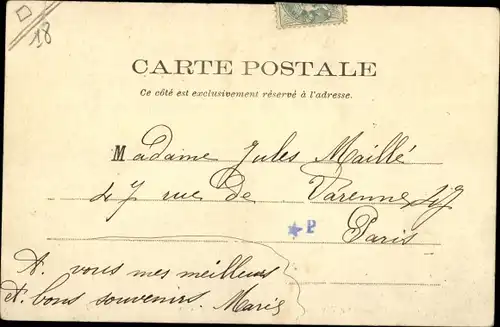 18
CARTE POSTALE
Ce côté est exclusivement réservé à l'adresse.
Madame Jules Maillé
47 rue de Varenne 47
P
Paris
A. vous mes meilleurs
et bons souvenirs. Marie